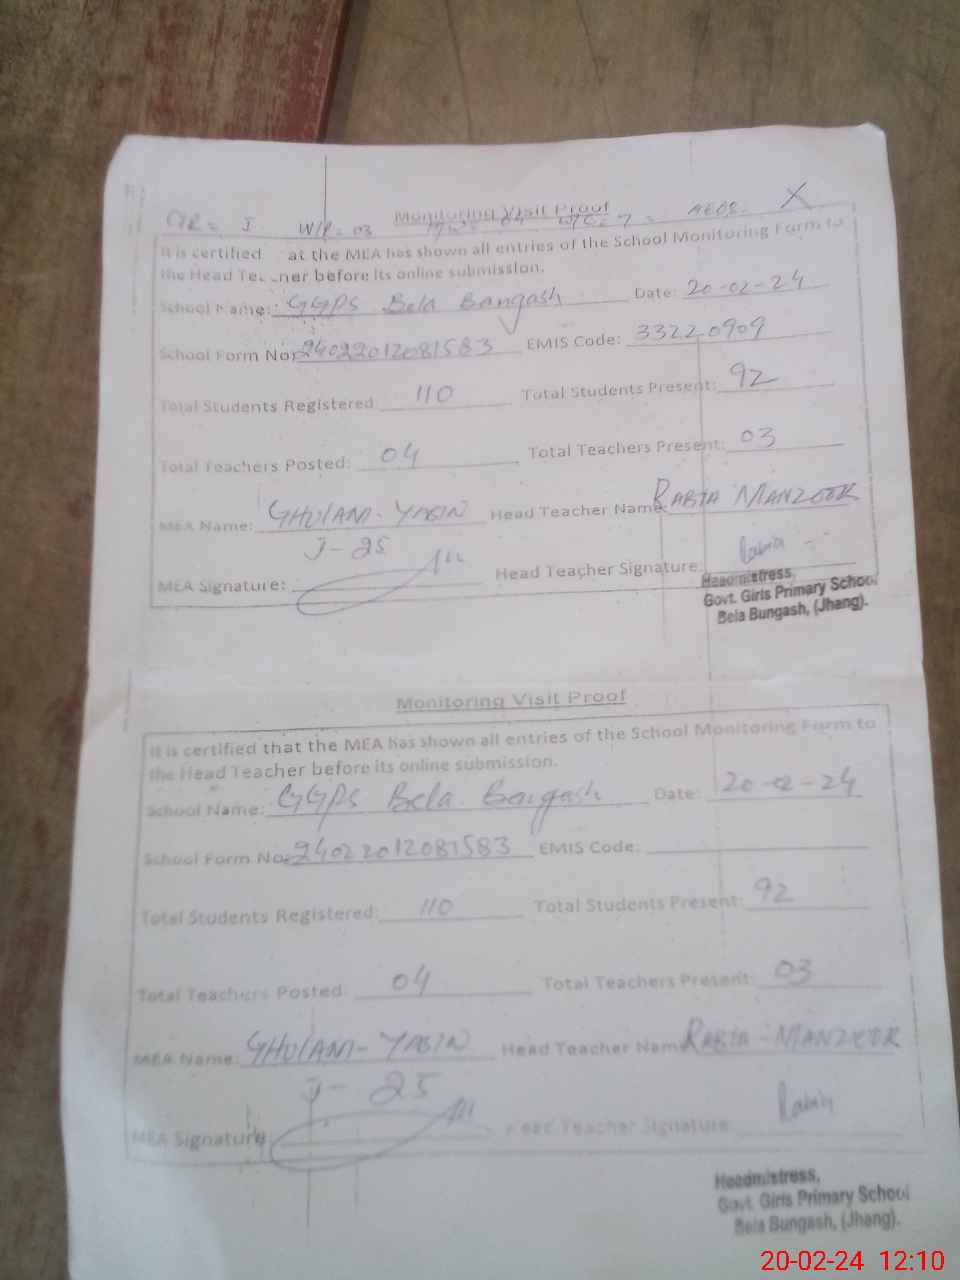 Monitoring Visit Proof
W/R = 03
AEOS. X
It is certified at the MEA has shown all entries of the School Monitoring Form to
the Head Te ner before its online submission.
School Name: GGPS Bela Bangash Date: 20-02-24
School Form No: 24022012081583 EMIS Code: 33220909
Total Students Registered 110 Total Students Present: 92
Total Teachers Posted: 04 Total Teachers Present: 03
MEA Name: GHULAM-YASIN Head Teacher Name: RABIA MANZOOR
J-25
MEA Signature: Head Teacher Signature: Rabia
Headmistress,
Govt. Girls Primary School
Bela Bungash, (Jhang).
Monitoring Visit Proof
It is certified that the MEA has shown all entries of the School Monitoring Form to
the Head Teacher before its online submission.
School Name: GGPS Bela Bangash Date: 20-02-24
School Form No: 24022012081583 EMIS Code:
Total Students Registered: 110 Total Students Present: 92
Total Teachers Posted: 04 Total Teachers Present: 03
MEA Name: GHULAM-YASIN Head Teacher Name RABIA-MANZOOR
J-25
MEA Signature: Head Teacher Signature: Rabia
Headmistress,
Govt. Girls Primary School
Bela Bungash, (Jhang).
20-02-24 12:10